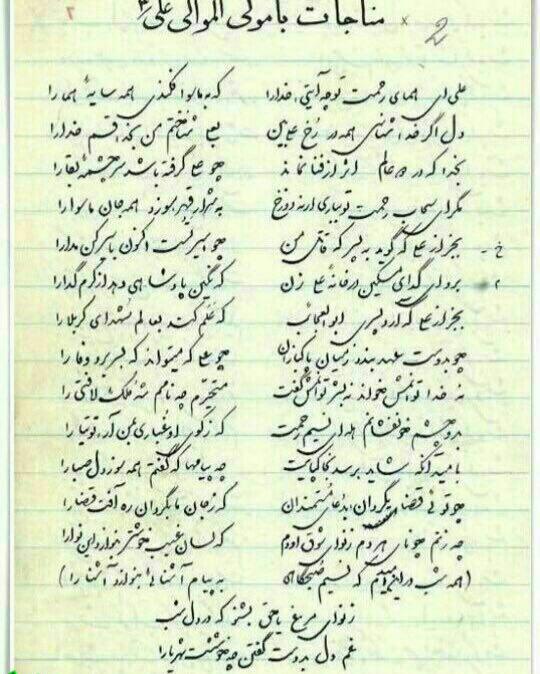 2 × مناجات با مولی الموالی علی ع ۲
علی ای همای رحمت تو چه آیتی خدا را که به ماسوا فکندی همه سایهٔ هما را
دل اگر خدا شناسی همه در رخ علی بین به علی شناختم من بخدا قسم خدا را
بخدا که در دو عالم اثر از فنا نماند چو علی گرفته باشد سرچشمهٔ بقا را
مگر ای سحاب رحمت تو بباری ارنه دوزخ به شرار قهر سوزد همه جان ماسوا را
خ ـ بجز از علی که گوید به پسر که قاتل من چو اسیر تست اکنون به اسیر کن مدارا
م برو ای گدای مسکین در خانهٔ علی زن که نگین پادشاهی دهد از کرم گدا را
بجز از علی که آرد پسری ابوالعجائب که علم کند بعالم شهدای کربلا را
چو بدوست عهد بندد ز میان پاکبازان چو علی که میتواند که بسر برد وفا را
نه خدا توانمش خواند نه بشر توانمش گفت متحیرم چه نامم شه ملک لافتی را
بدو چشم خونفشانم هله ای نسیم رحمت که ز کوی او غباری بمن آر توتیا را
بامید آنکه شاید برسد بخاک پایت چه پیامها که گفتم همه سوز دل صبا را
چو توئی قضا بگردان بدعای مستمندان که ز جان ما بگردان ره آفت قضا را
چه زنم چو نای هر دم ز نوای شوق او دم که لسان غیب خوشتر بنوازد این نوا را
(همه شب در این امیدم که نسیم صبحگاهی به پیام آشنائی بنوازد آشنا را)
ز نوای مرغ یا حق بشنو که در دل شب
غم دل بدوست گفتن چه خوشست شهریارا